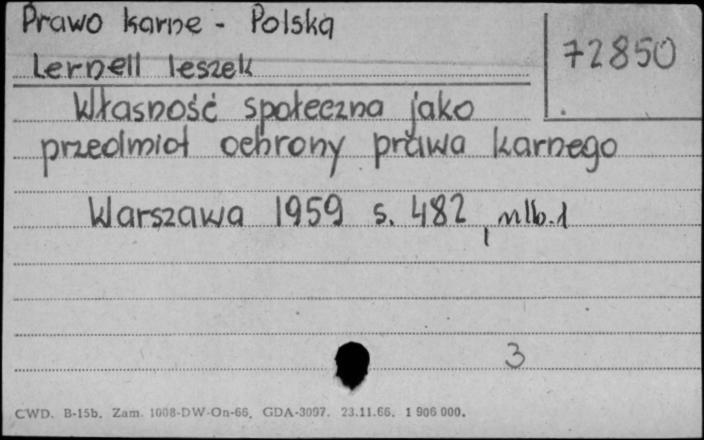 Prawo karne - Polska
72850
Lernell Leszek
Własność społeczna jako
przedmiot ochrony prawa karnego
Warszawa 1959 s. 482, nlb. 1
3
CWD. B-15b. Zam. 1008-DW-On-66. GDA-3097. 23.11.66. 1 906 000.